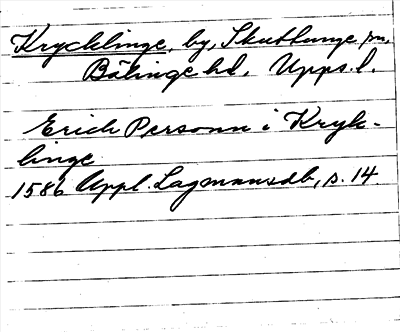 Krycklinge, by, Skuttunge sn,
Bälinge hd, Upps. l.
Erich Personn i Kryk-
linge
1586 Uppl. Lagmansdb, s. 14